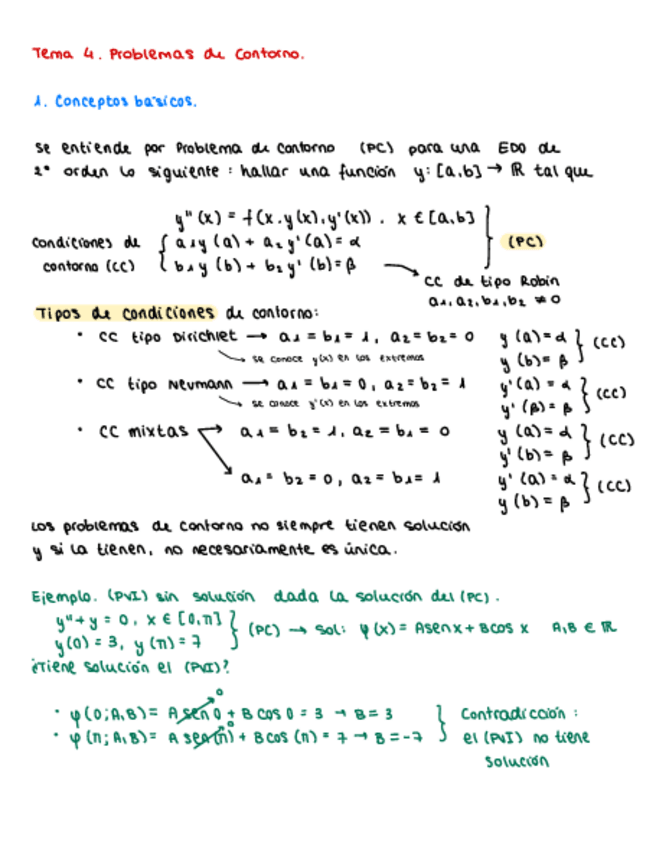 Tema 4. Problemas de contorno.
1. Conceptos básicos.
Se entiende por Problema de contorno (PC) para una EDO de
2º orden lo siguiente: hallar una función y: [a,b] → ℝ tal que
y''(x) = f(x, y(x), y'(x)), x ∈ [a,b]
condiciones de contorno (CC) { a₁y(a) + a₂y'(a) = α
b₁y(b) + b₂y'(b) = β } (PC)
→ CC de tipo Robin
a₁, a₂, b₁, b₂ ≠ 0
Tipos de condiciones de contorno:
· CC tipo Dirichlet → a₁ = b₁ = 1, a₂ = b₂ = 0 y(a) = α } (CC)
→ se conoce y(x) en los extremos y(b) = β
· CC tipo Neumann → a₁ = b₁ = 0, a₂ = b₂ = 1 y'(a) = α } (CC)
→ se conoce y'(x) en los extremos y'(β) = β
· CC mixtas → a₁ = b₂ = 1, a₂ = b₁ = 0 y(a) = α } (CC)
y'(b) = β
→ a₁ = b₂ = 0, a₂ = b₁ = 1 y'(a) = α } (CC)
y(b) = β
Los problemas de contorno no siempre tienen solución
y si la tienen, no necesariamente es única.
Ejemplo. (PVI) sin solución dada la solución del (PC).
y'' + y = 0, x ∈ [0,π]
y(0) = 3, y(π) = 7 } (PC) → Sol: φ(x) = A sen x + B cos x A,B ∈ ℝ
¿Tiene solución el (PVI)?
· φ(0; A,B) = A sen 0 + B cos 0 = 3 → B = 3 } Contradicción:
· φ(π; A,B) = A sen(π) + B cos(π) = 7 → B = -7 el (PVI) no tiene
solución